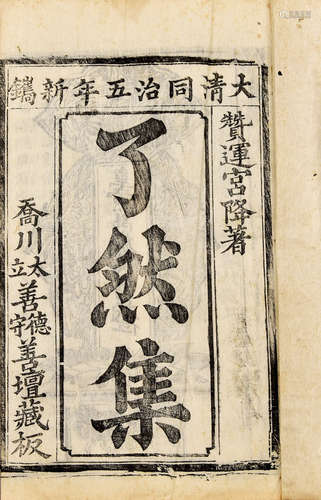 大清同治五年新鐫
贊運宮降著
了然集
喬川太德善壇藏板
立善守